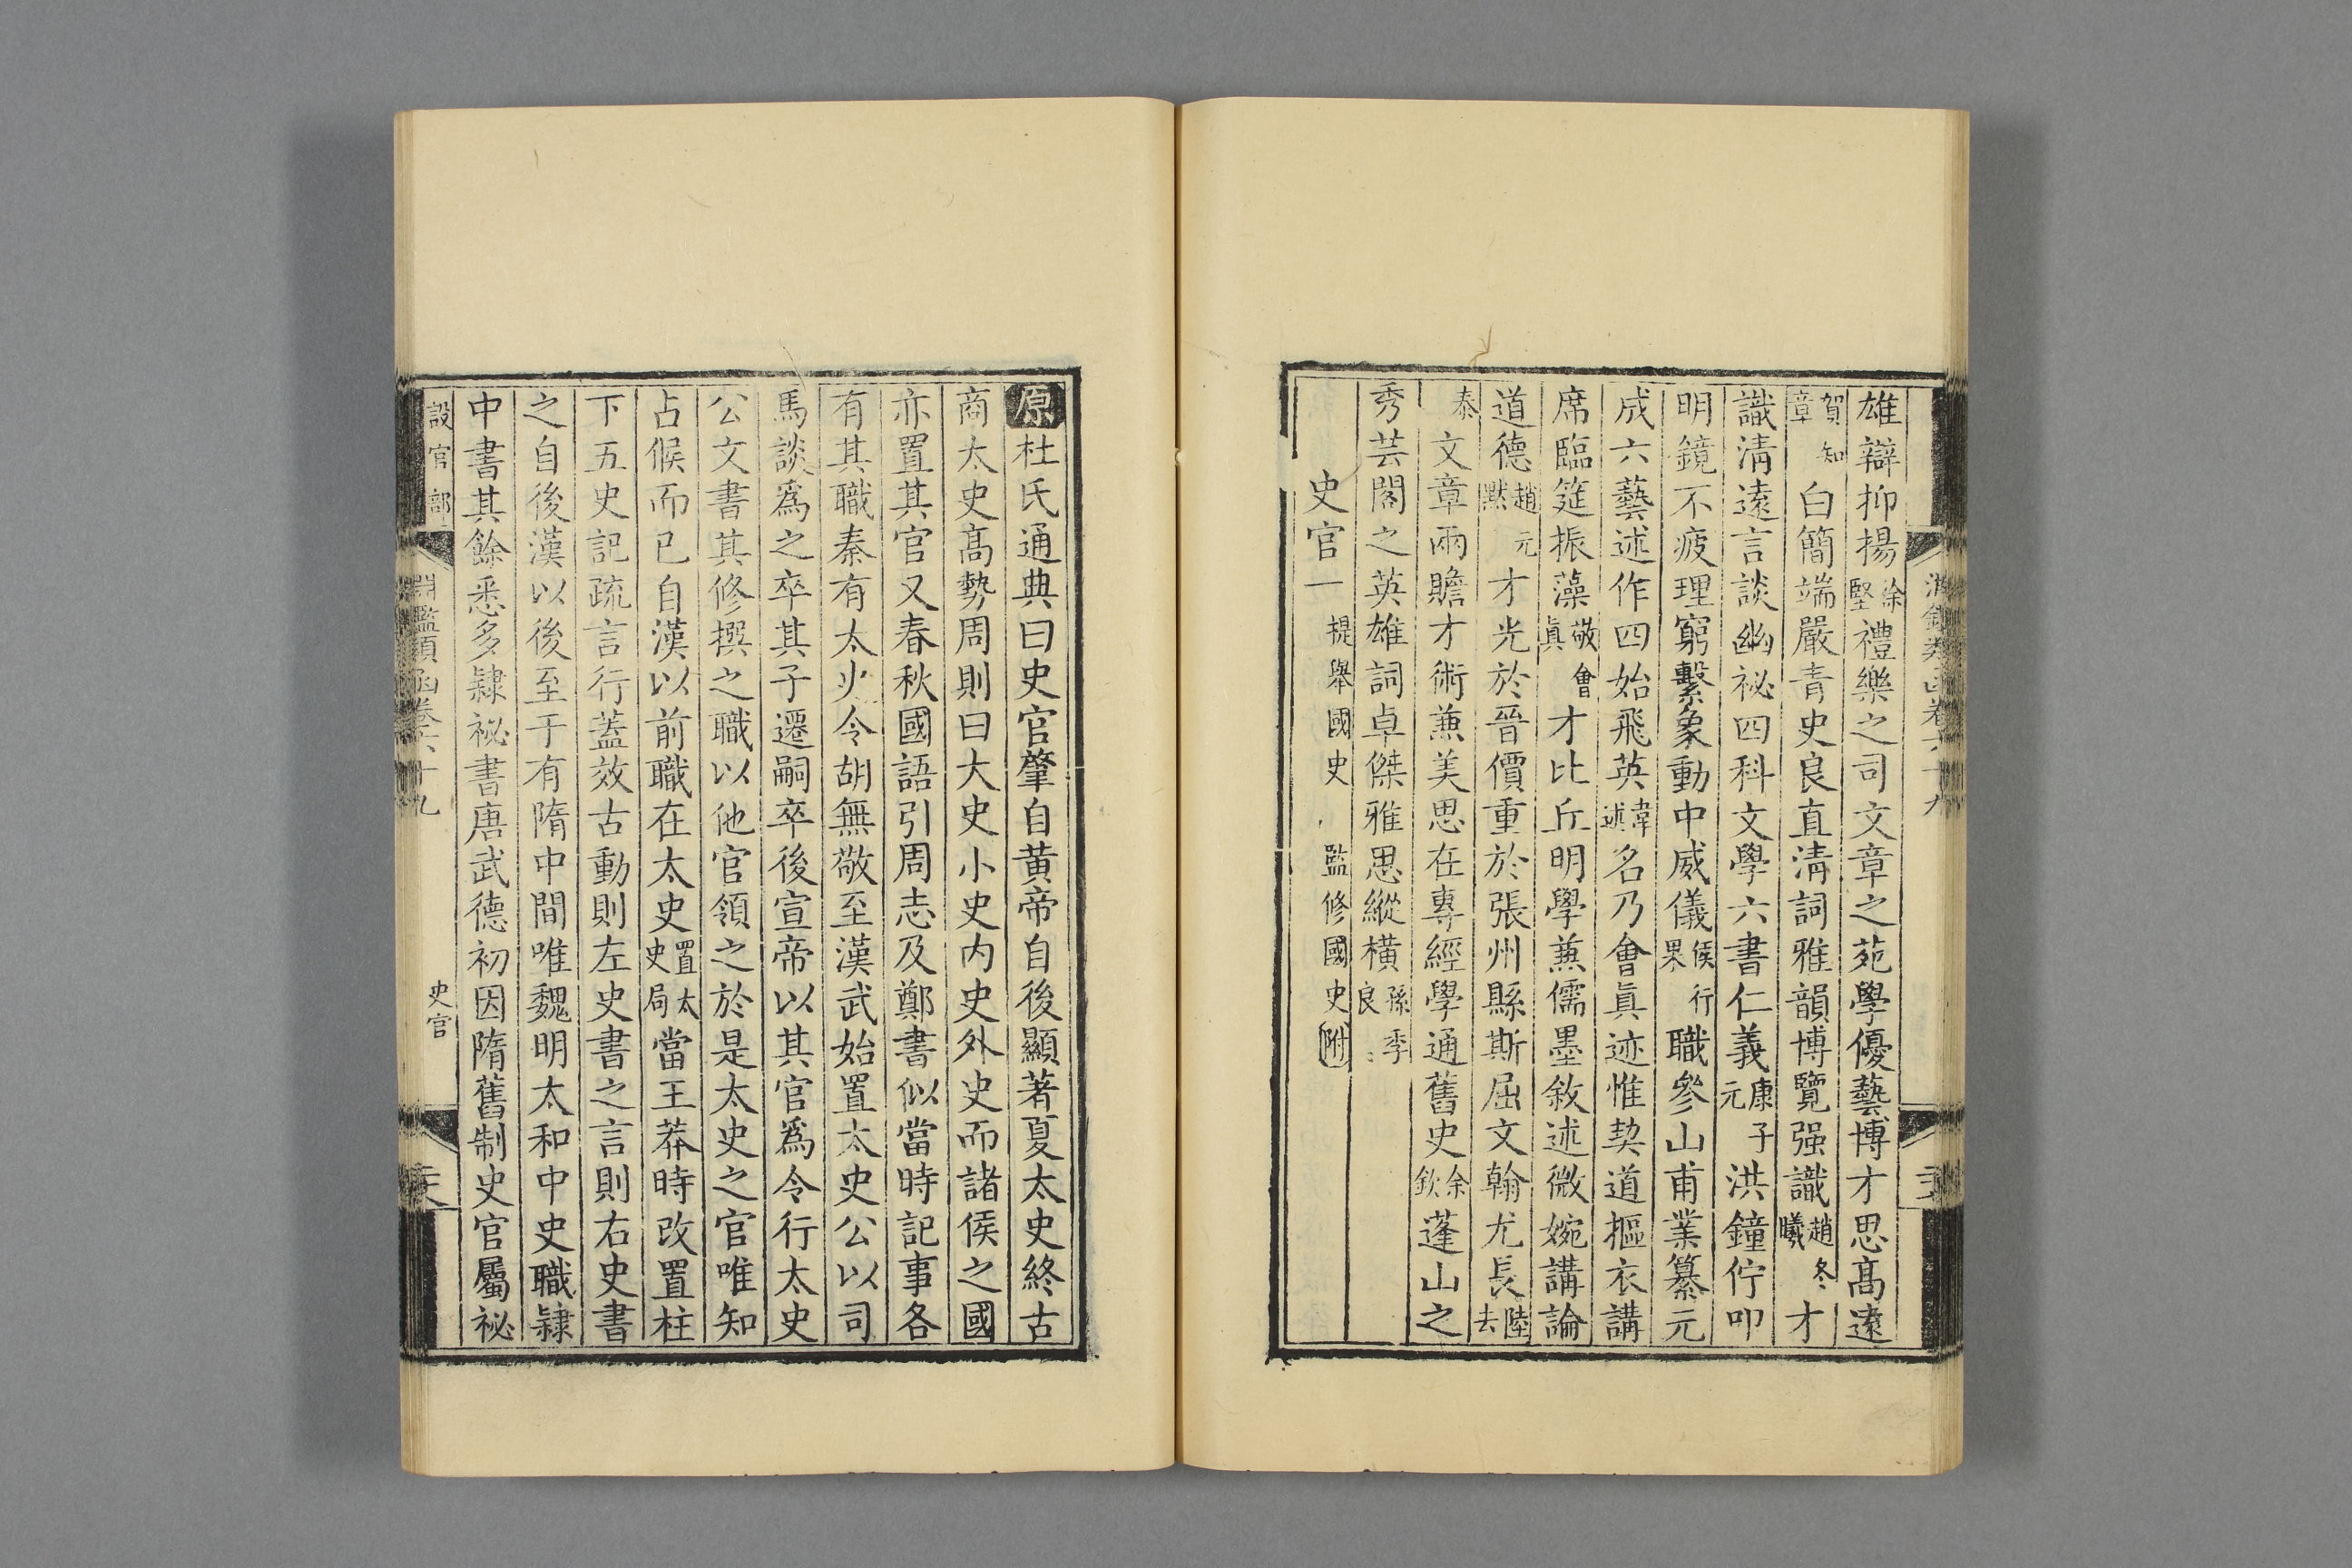 雄辯抑揚徐堅禮樂之司文章之苑學優藝博才思高遠
賀知章白簡端嚴青史良直清詞雅韻博覽强識趙冬曦才
識清遠言談幽祕四科文學六書仁義康子元洪鐘佇叩
明鏡不疲理窮繫象動中威儀侯行果職參山甫業纂元
成六藝述作四始飛英韋述名乃會眞迹惟契道樞衣講
席臨筵振藻敬會眞才比丘明學兼儒墨敘述微婉講論
道德趙元默才光於晉價重於張州縣斯屈文翰尤長陸去
泰文章兩贍才術兼美思在專經學通舊史余欽蓬山之
秀芸閣之英雄詞卓傑雅思縱橫孫季良
史官一提舉國史 監修國史附
原杜氏通典曰史官肇自黃帝自後顯著夏太史終古
商太史高勢周則曰大史小史内史外史而諸侯之國
亦置其官又春秋國語引周志及鄭書似當時記事各
有其職秦有太史令胡無敬至漢武始置太史公以司
馬談爲之卒其子遷嗣卒後宣帝以其官爲令行太史
公文書其修撰之職以他官領之於是太史之官唯知
占候而已自漢以前職在太史置太史局當王莽時改置柱
下五史記疏言行蓋效古動則左史書之言則右史書
之自後漢以後至于有隋中間唯魏明太和中史職隸
中書其餘悉多隸祕書唐武德初因隋舊制史官屬祕
設官部 淵鑑類函卷六十九 史官